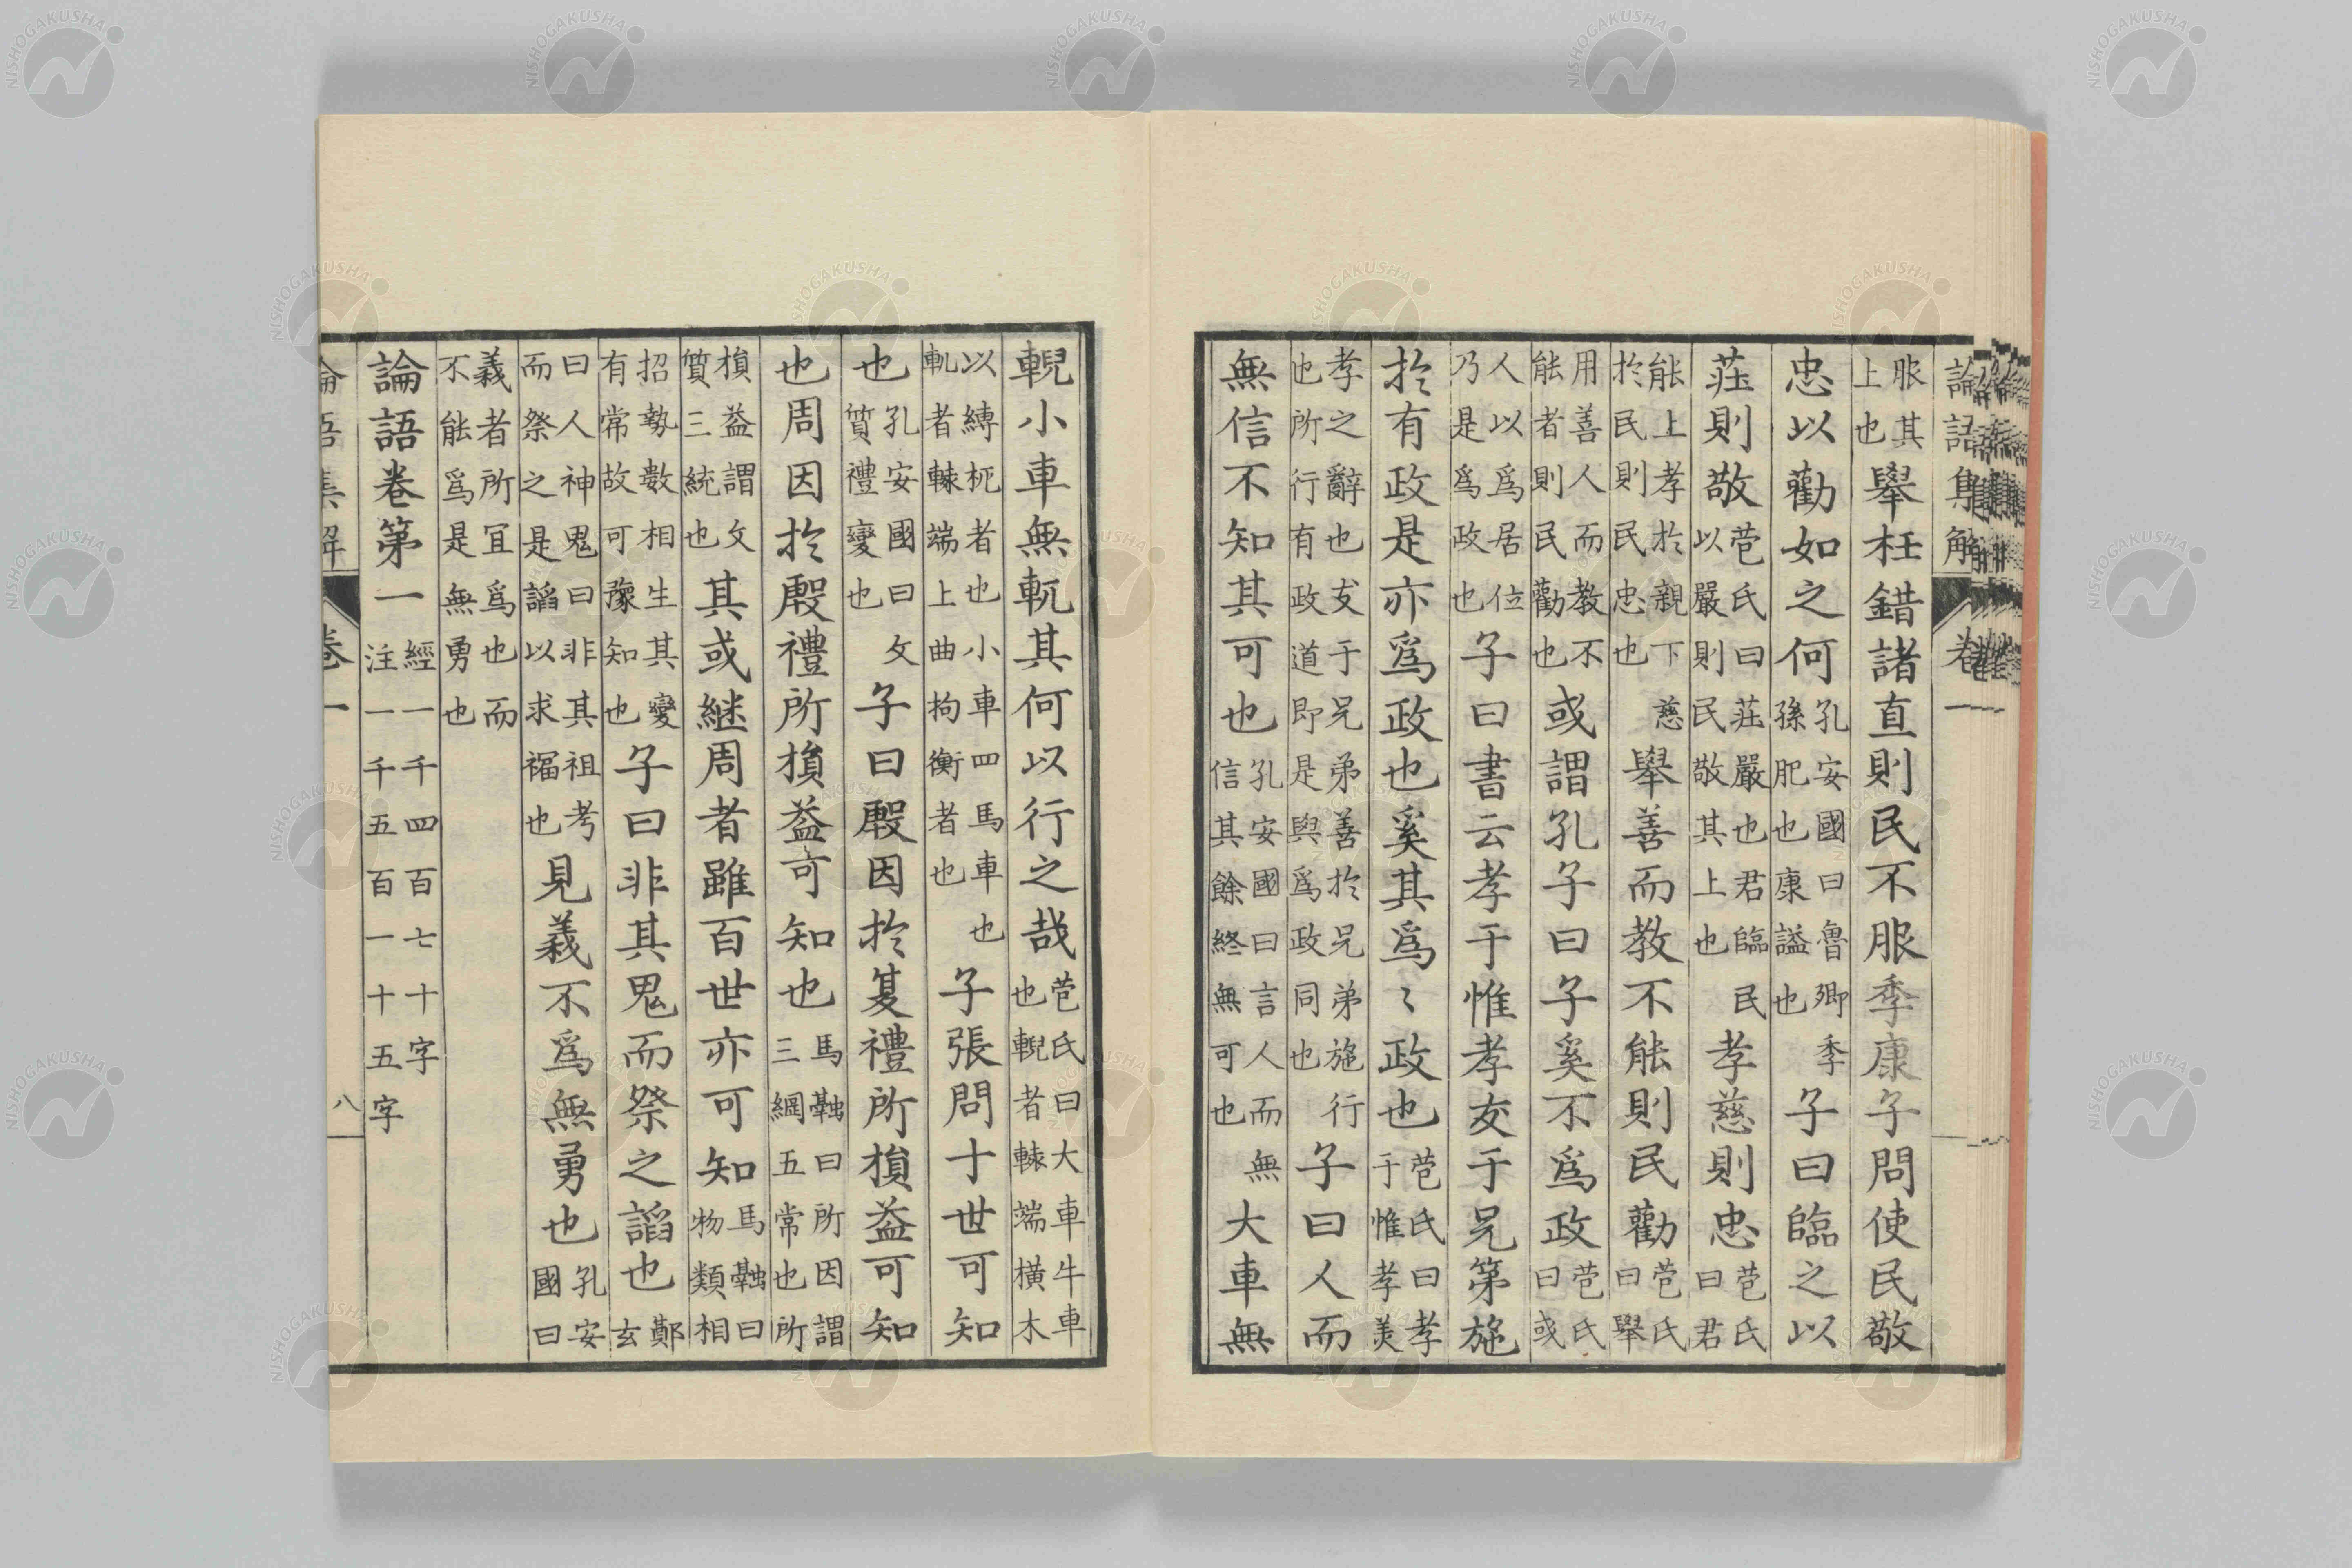 論語集解 卷一
服其上也舉枉錯諸直則民不服季康子問使民敬
忠以勸如之何孔安國曰魯卿季孫肥也康謚也子曰臨之以
莊則敬苞氏曰莊嚴也君臨民以嚴則民敬其上也孝慈則忠苞氏曰君
能上孝於親下慈於民則民忠也舉善而教不能則民勸苞氏曰舉
用善人而教不能者則民勸也或謂孔子曰子奚不爲政苞氏曰或
人以爲居位乃是爲政也子曰書云孝于惟孝友于兄第施
於有政是亦爲政也奚其爲〻政也苞氏曰孝于惟孝美
孝之辭也友于兄弟善於兄弟施行也所行有政道即是與爲政同也子曰人而
無信不知其可也孔安國曰言人而無信其餘終無可也大車無
輗小車無軏其何以行之哉苞氏曰大車牛車也輗者轅端橫木
以縛枙者也小車四馬車也軏者轅端上曲拘衡者也子張問十世可知
也孔安國曰文質禮變也子曰殷因於夏禮所損益可知
也周因於殷禮所損益可知也馬融曰所因謂三綱五常也所
損益謂文質三統也其或継周者雖百世亦可知馬融曰物類相
招勢數相生其變有常故可豫知也子曰非其鬼而祭之諂也鄭玄
曰人神鬼曰非其祖考而祭之是諂以求福也見義不爲無勇也孔安國曰
義者所宜爲也而不能爲是無勇也
論語卷第一 經一千四百七十字注一千五百一十五字
論語集解 卷一 八